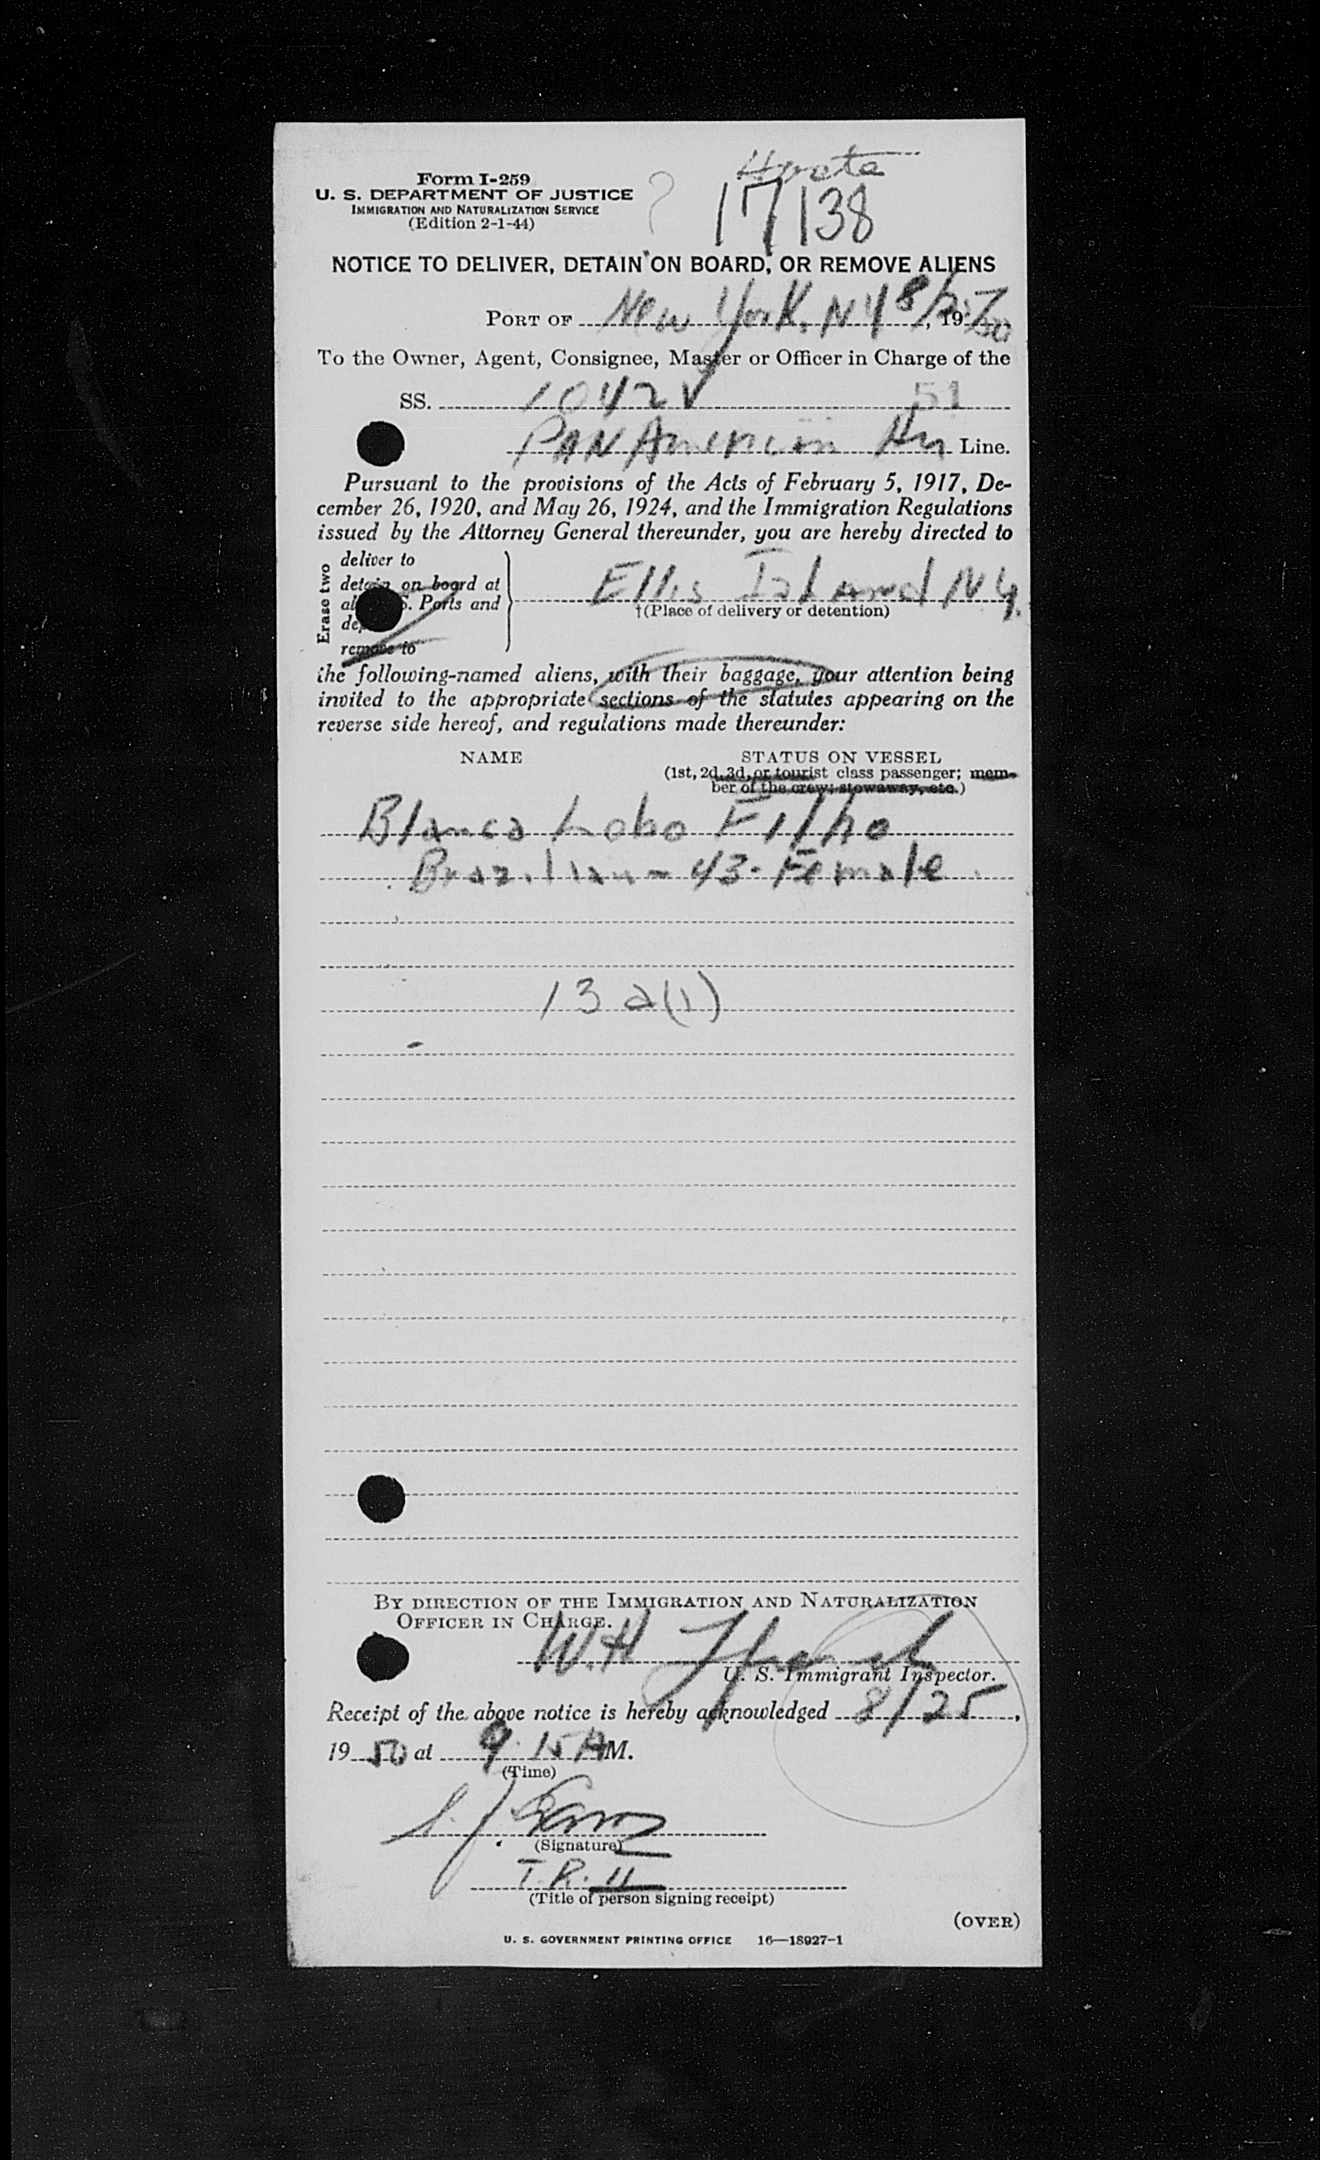 Form I-259
U. S. DEPARTMENT OF JUSTICE
IMMIGRATION AND NATURALIZATION SERVICE
(Edition 2-1-44)
?
17138
NOTICE TO DELIVER, DETAIN ON BOARD, OR REMOVE ALIENS
PORT OF New York, NY 8/25, 19 50
To the Owner, Agent, Consignee, Master or Officer in Charge of the
SS. 1042 V 51
PAN American Line.
Pursuant to the provisions of the Acts of February 5, 1917, De-
cember 26, 1920, and May 26, 1924, and the Immigration Regulations
issued by the Attorney General thereunder, you are hereby directed to
Erase two
deliver to
detain on board at
S. Ports and
remove to
Ellis Island NY.
†(Place of delivery or detention)
the following-named aliens, with their baggage, your attention being
invited to the appropriate sections of the statutes appearing on the
reverse side hereof, and regulations made thereunder:
NAME STATUS ON VESSEL
(1st, 2d, 3d, or tourist class passenger; mem-
ber of the crew; stowaway, etc.)
Blanca Lobo Filho
Brazilian - 43 - Female
13 a(1)
BY DIRECTION OF THE IMMIGRATION AND NATURALIZATION
OFFICER IN CHARGE.
W.H.
U. S. Immigrant Inspector.
Receipt of the above notice is hereby acknowledged 8/25,
19 50 at 9.15 A M.
(Time)
S. J.
(Signature)
T. R. 11
(Title of person signing receipt)
(OVER)
U. S. GOVERNMENT PRINTING OFFICE 16—18927-1